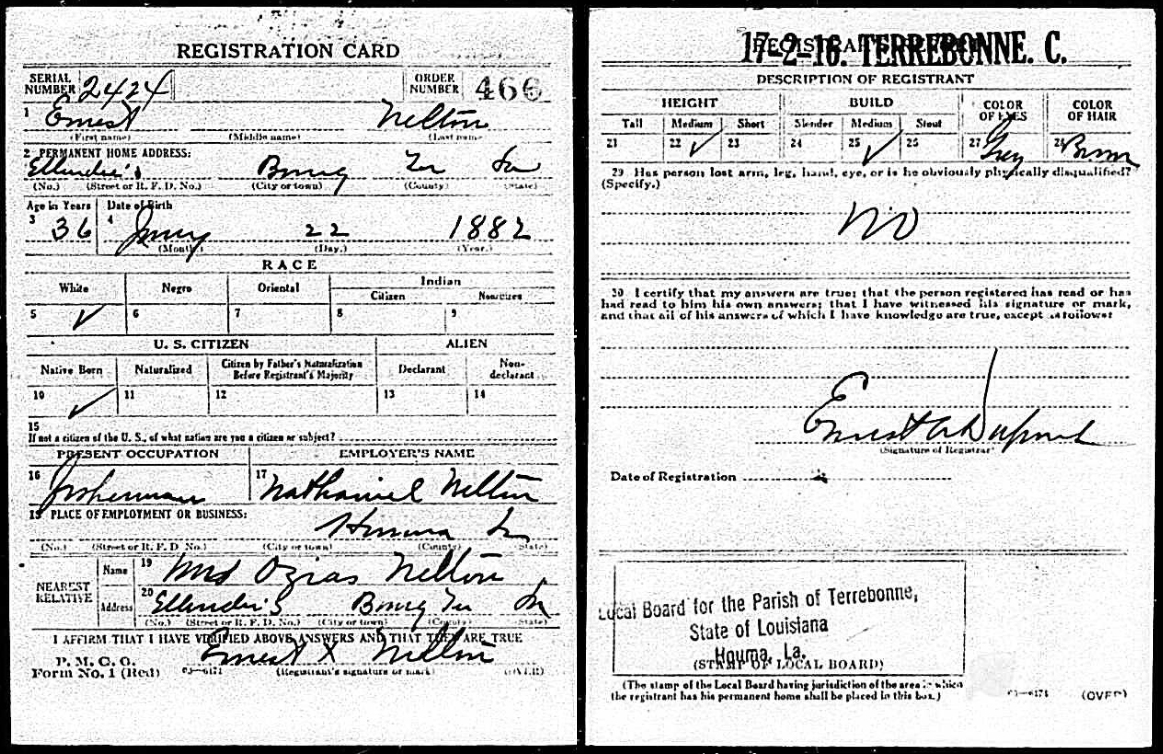 REGISTRATION CARD
SERIAL NUMBER 2424 ORDER NUMBER 466
1 Ernest Nelton
(First name) (Middle name) (Last name)
2 PERMANENT HOME ADDRESS:
Ellender's Bourg La
(No.) (Street or R. F. D. No.) (City or town) (County) (State)
Age in Years Date of Birth
3 36 4 22 1882
(Month) (Day.) (Year.)
RACE
White Negro Oriental Indian
Citizen Noncitizen
5 ✓ 6 7 8 9
U. S. CITIZEN ALIEN
Native Born Naturalized Citizen by Father's Naturalization Before Registrant's Majority Declarant Non-declarant
10 ✓ 11 12 13 14
15
If not a citizen of the U. S., of what nation are you a citizen or subject?
PRESENT OCCUPATION EMPLOYER'S NAME
16 Fisherman 17 Nathaniel Nelton
18 PLACE OF EMPLOYMENT OR BUSINESS:
Houma La
(No.) (Street or R. F. D. No.) (City or town) (County) (State)
NEAREST RELATIVE Name 19 Mrs Ozias Nelton
Address 20 Ellender's Bourg La
(No.) (Street or R. F. D. No.) (City or town) (County) (State)
I AFFIRM THAT I HAVE VERIFIED ABOVE ANSWERS AND THAT THEY ARE TRUE
Ernest X Nelton
P. M. G. O.
Form No. 1 (Red) 03—6171 (Registrant's signature or mark) (OVER)
REGISTRAR'S REPORT
17-2-16. TERREBONNE. C.
DESCRIPTION OF REGISTRANT
HEIGHT BUILD COLOR OF EYES COLOR OF HAIR
Tall Medium Short Slender Medium Stout
21 22 ✓ 23 24 25 ✓ 26 27 Grey 28 Brown
29 Has person lost arm, leg, hand, eye, or is he obviously physically disqualified?
(Specify.)
NO
30 I certify that my answers are true; that the person registered has read or has
had read to him his own answers; that I have witnessed his signature or mark,
and that all of his answers of which I have knowledge are true, except as follows:
Ernest A Dupont
(Signature of Registrar)
Date of Registration
Local Board for the Parish of Terrebonne,
State of Louisiana
Houma, La.
(STAMP OF LOCAL BOARD)
(The stamp of the Local Board having jurisdiction of the area in which
the registrant has his permanent home shall be placed in this box.)
03—6171 (OVER)